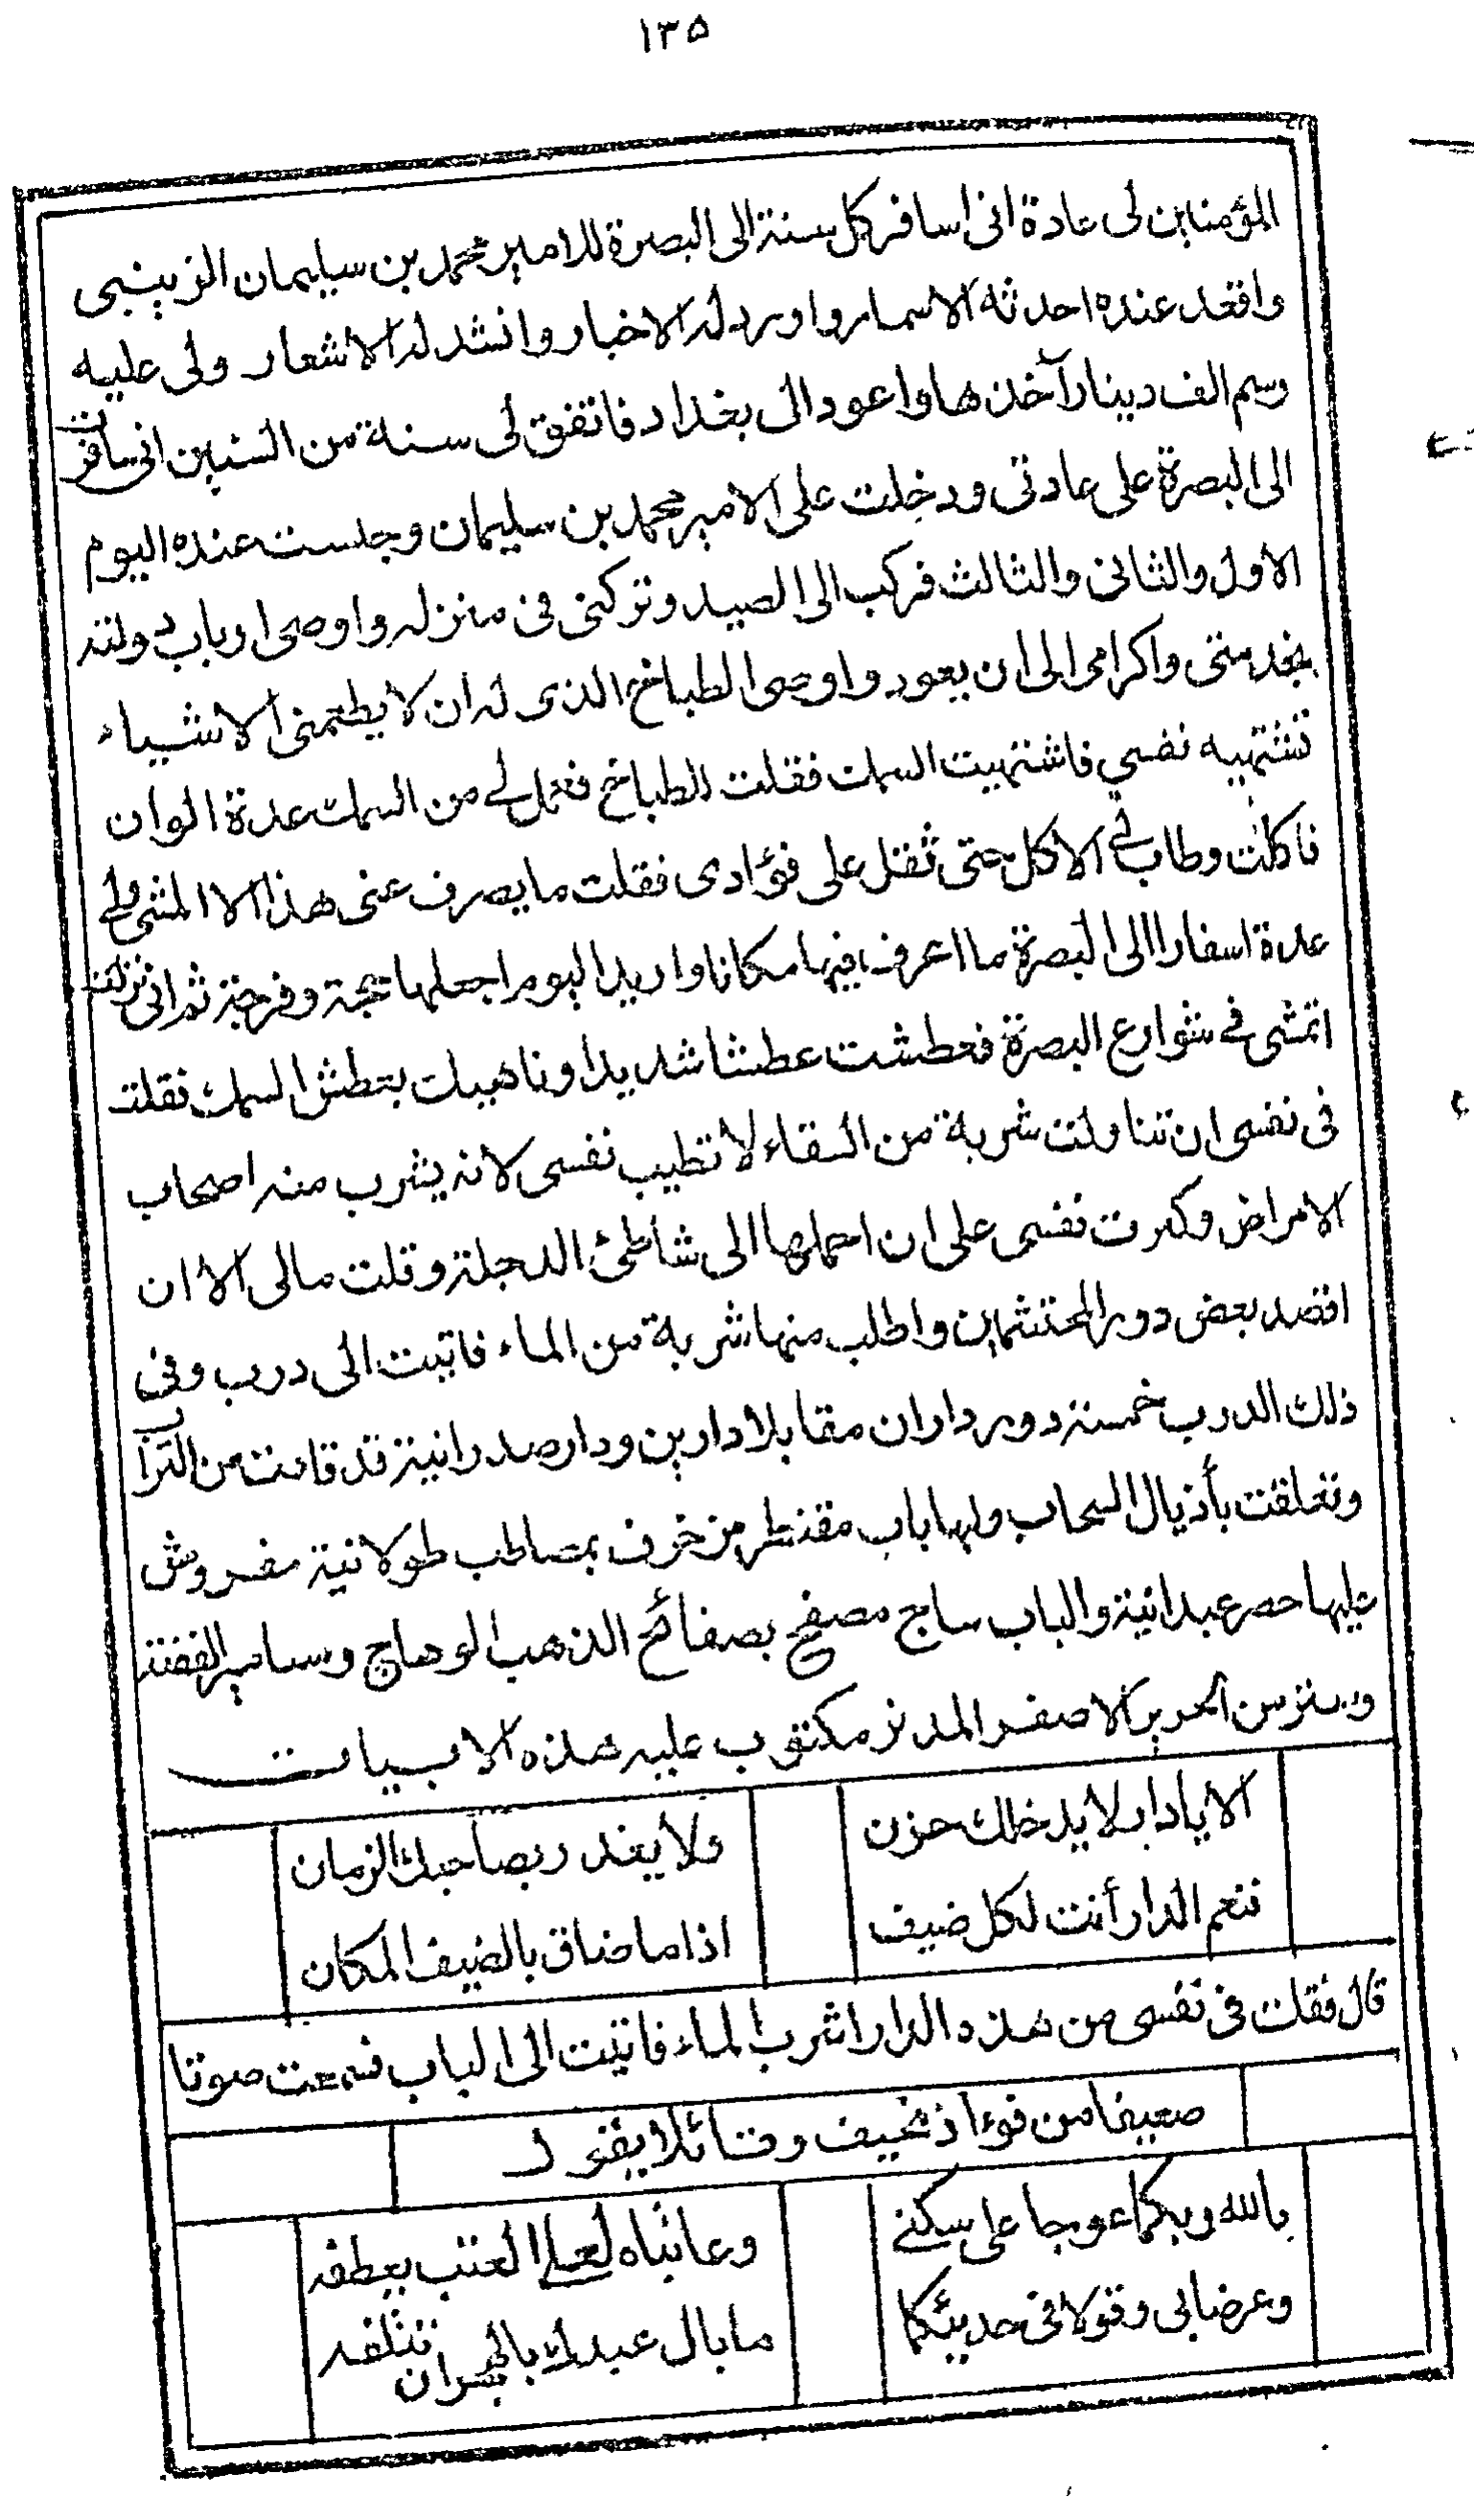 ١٣٥
المؤمنين لى عادة انى اسافر كل سنة الى البصرة للامير محمد بن سليمان الزينبى
واقعد عنده احدثه الاسمار واورد له الاخبار وانشد له الاشعار ولى عليه
رسم الف دينار آخذها واعود الى بغداد فاتفق لى سنة من السنين انى سافرت
الى البصرة على عادتى ودخلت على الامير محمد بن سليمان وجلست عنده اليوم
الاول والثانى والثالث فركب الى الصيد وتركنى فى منزله واوصى ارباب دولته
بخدمتى واكرامى الى ان يعود واوصى الطباخ الذى له ان لا يطعمنى الا شياء
تشتهيه نفسي فاشتهيت السمك فقلت للطباخ فعمل لي من السمك عدة الوان
فاكلت وطاب لي الاكل حتى ثقل على فؤادى فقلت ما يصرف عنى هذا الا المشى ولي
عدة اسفارا الى البصرة ما اعرف فيها مكانا واريد اليوم اجعلها حجة وفرجة ثم انى نزلت
اتمشى في شوارع البصرة فعطشت عطشا شديدا وناهيك بعطش السمك فقلت
فى نفسى ان تناولت شربة من السقاء لا تطيب نفسى لانه يشرب منه اصحاب
الامراض وكبرت نفسى على ان احملها الى شاطئ الدجلة وقلت مالى الا ان
اقصد بعض دور المحتشمين واطلب منها شربة من الماء فاتيت الى درب وفى
ذلك الدرب خمسة دور داران مقابلا دارين ودار صدرانية قد قامت من التراب
وتعلقت بأذيال السحاب ولها باب مقنطر مزخرف بمصاطب طولانية مفروش
عليها حصر عبدانية والباب ساج مصفح بصفائح الذهب الوهاج ومسامير الفضة
وستر من الحرير الاصفر المدنر مكتوب عليه هذه الابيات
الا يا دار لا يدخلك حزن ولا يغدر بصاحبك الزمان
فنعم الدار أنت لكل ضيف اذا ما ضاق بالضيف المكان
قال فقلت فى نفسى من هذه الدار اشرب الماء فاتيت الى الباب فسمعت صوتا
ضعيفا من فوءاذ نحيف وقائلا يقول
بالله ربكما عوجا على سكنے وعاتباه لعل العتب يعطفه
وعرضا بى وقولا فى حديثكما ما بال عبدك بالهجران تتلفه